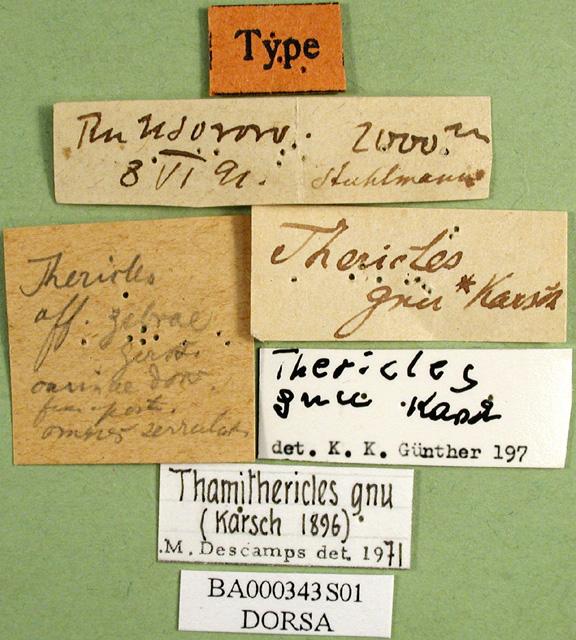 Type
Runssororo. 2000 m
8 VI 91. Stuhlmann
Thericles
gnu * Karsch
Thericles
aff. zebrae
Gerst.
carinae dors.
fem. post.
omnes serratae
Thericles
gnu Karsch
det. K. K. Günther 197
Thamithericles gnu
(Karsch 1896)
M. Descamps det. 1971
BA000343S01
DORSA